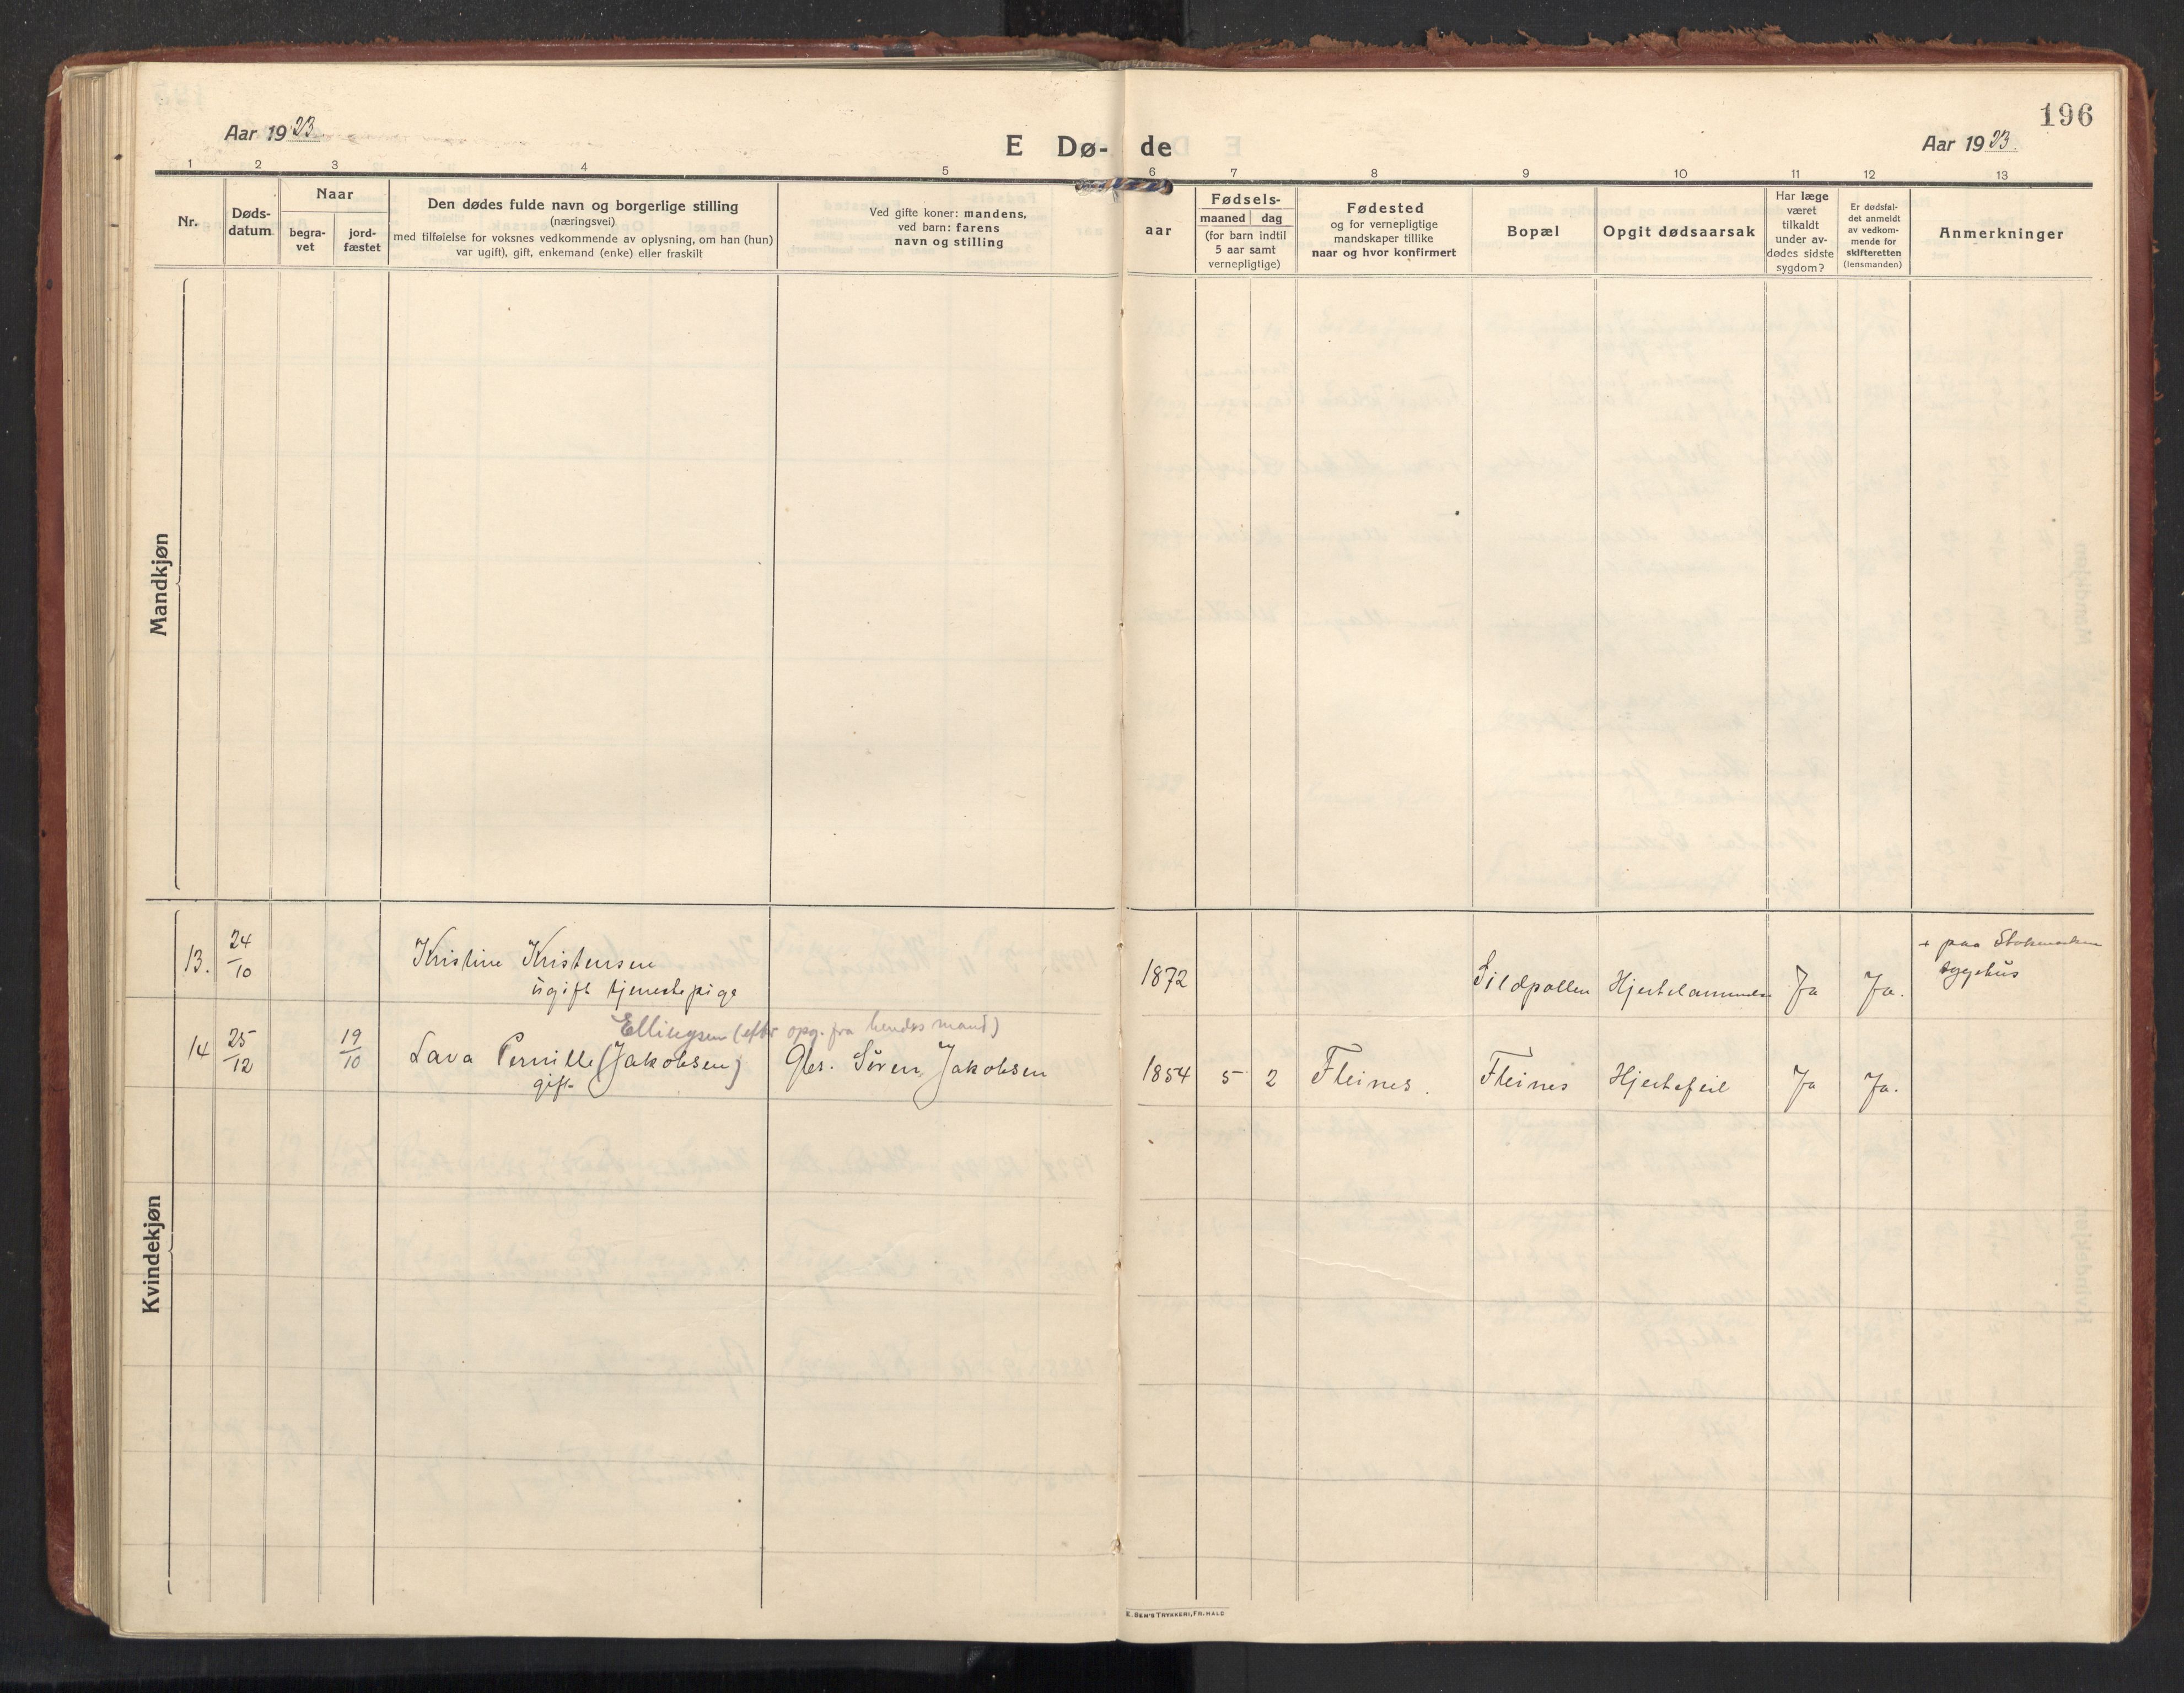 196
Aar 1923.
E Dø- de
Aar 1923.
1 2 3 4 5 6 7 8 9 10 11 12 13
Nr.
Døds-
datum
Naar
begra-
vet
jord-
fæstet
Den dødes fulde navn og borgerlige stilling
(næringsvei)
med tilføielse for voksnes vedkommende av oplysning, om han (hun)
var ugift), gift, enkemand (enke) eller fraskilt
Ved gifte koner: mandens,
ved barn: farens
navn og stilling
aar
Fødsels-
maaned dag
(for barn indtil
5 aar samt
vernepligtige)
Fødested
og for vernepligtige
mandskaper tillike
naar og hvor konfirmert
Bopæl
Opgit dødsaarsak
Har læge
været
tilkaldt
under av-
dødes sidste
sygdom?
Er dødsfal-
det anmeldt
av vedkom-
mende for
skifteretten
(lensmanden)
Anmerkninger
Mandkjøn
Kvindekjøn
13. 24/10 Kristine Kristensen
ugift tjenestepige
1872 Sildpollen Hjertelammelse Ja Ja.
+ paa Stokmarknes
sygehus
Ellingsen (efter opg. fra hendes mand)
14 25/12 19/10 Lava Pernille (Jakobsen)
gift
Gbr. Søren Jakobsen 1854 5 2 Fleines. Fleines Hjertefeil Ja Ja.
E. SEM'S TRYKKERI, FR.HALD